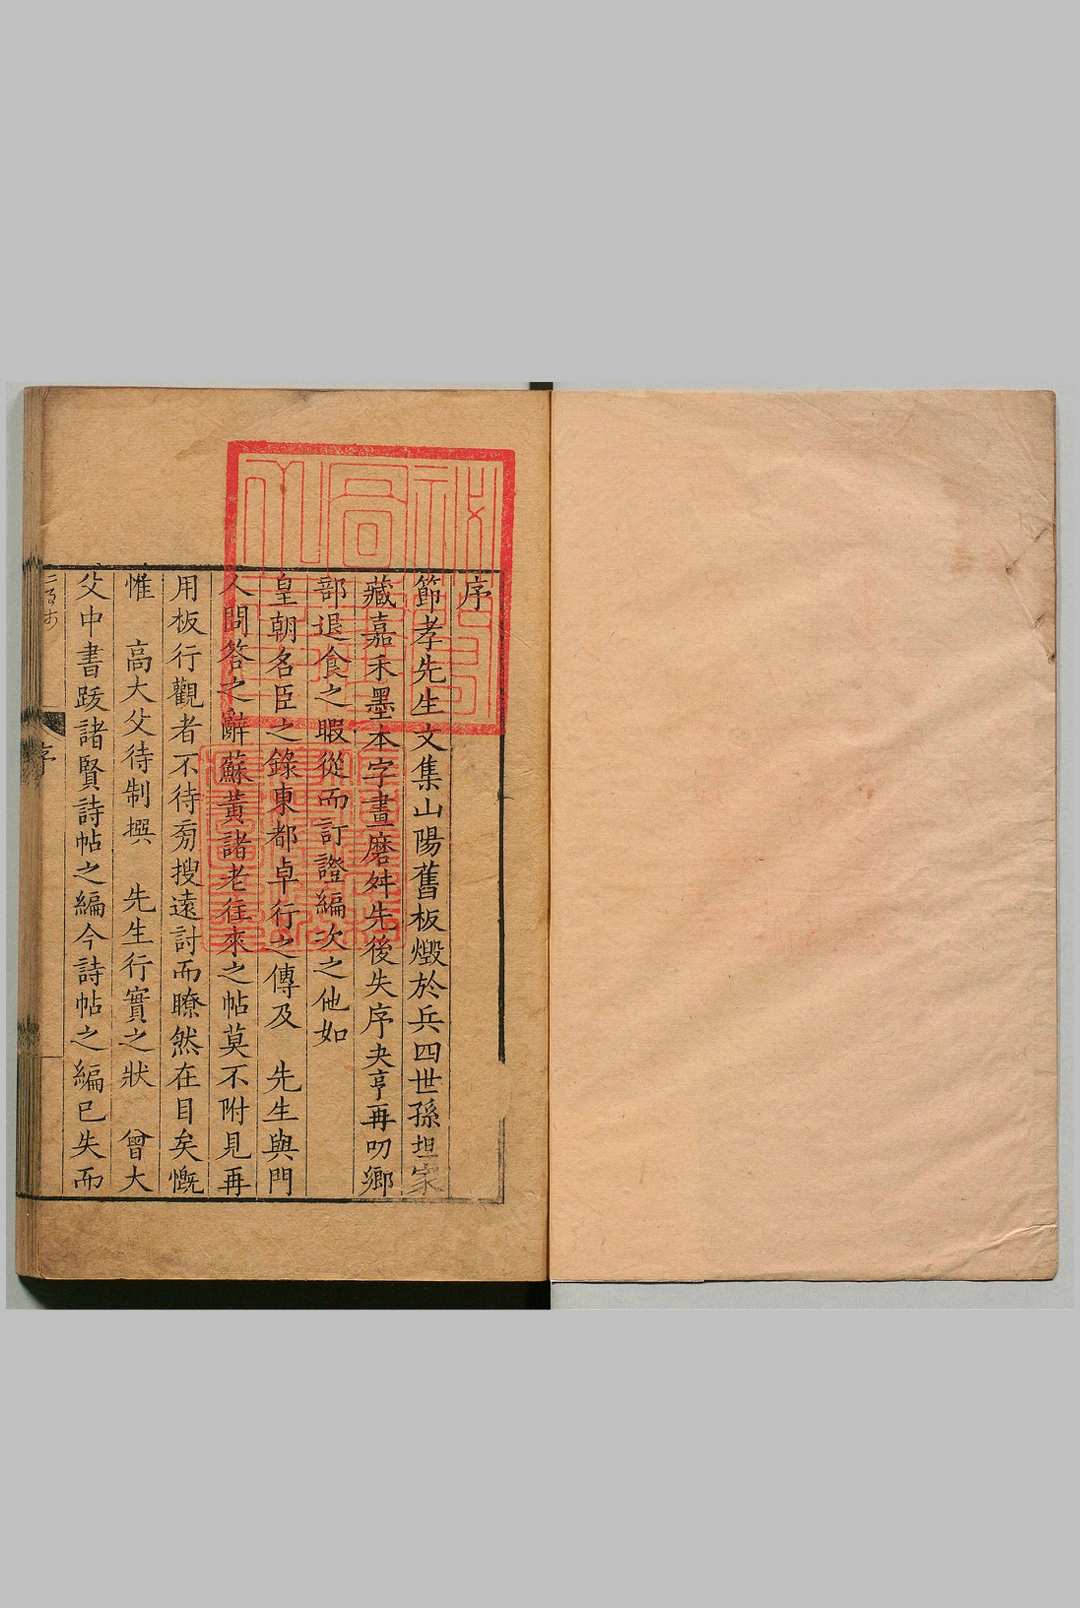 序
節孝先生文集山陽舊板燬於兵四世孫坦家
藏嘉禾墨本字畫磨舛先後失序夬亨再叨鄉
部退食之暇從而訂證編次之他如
皇朝名臣之錄東都卓行之傳及　先生與門
人問答之辭蘇黃諸老往來之帖莫不附見再
用板行觀者不待旁搜遠討而瞭然在目矣慨
惟　高大父待制撰　先生行實之狀　曾大
父中書跋諸賢詩帖之編今詩帖之編已失而
序